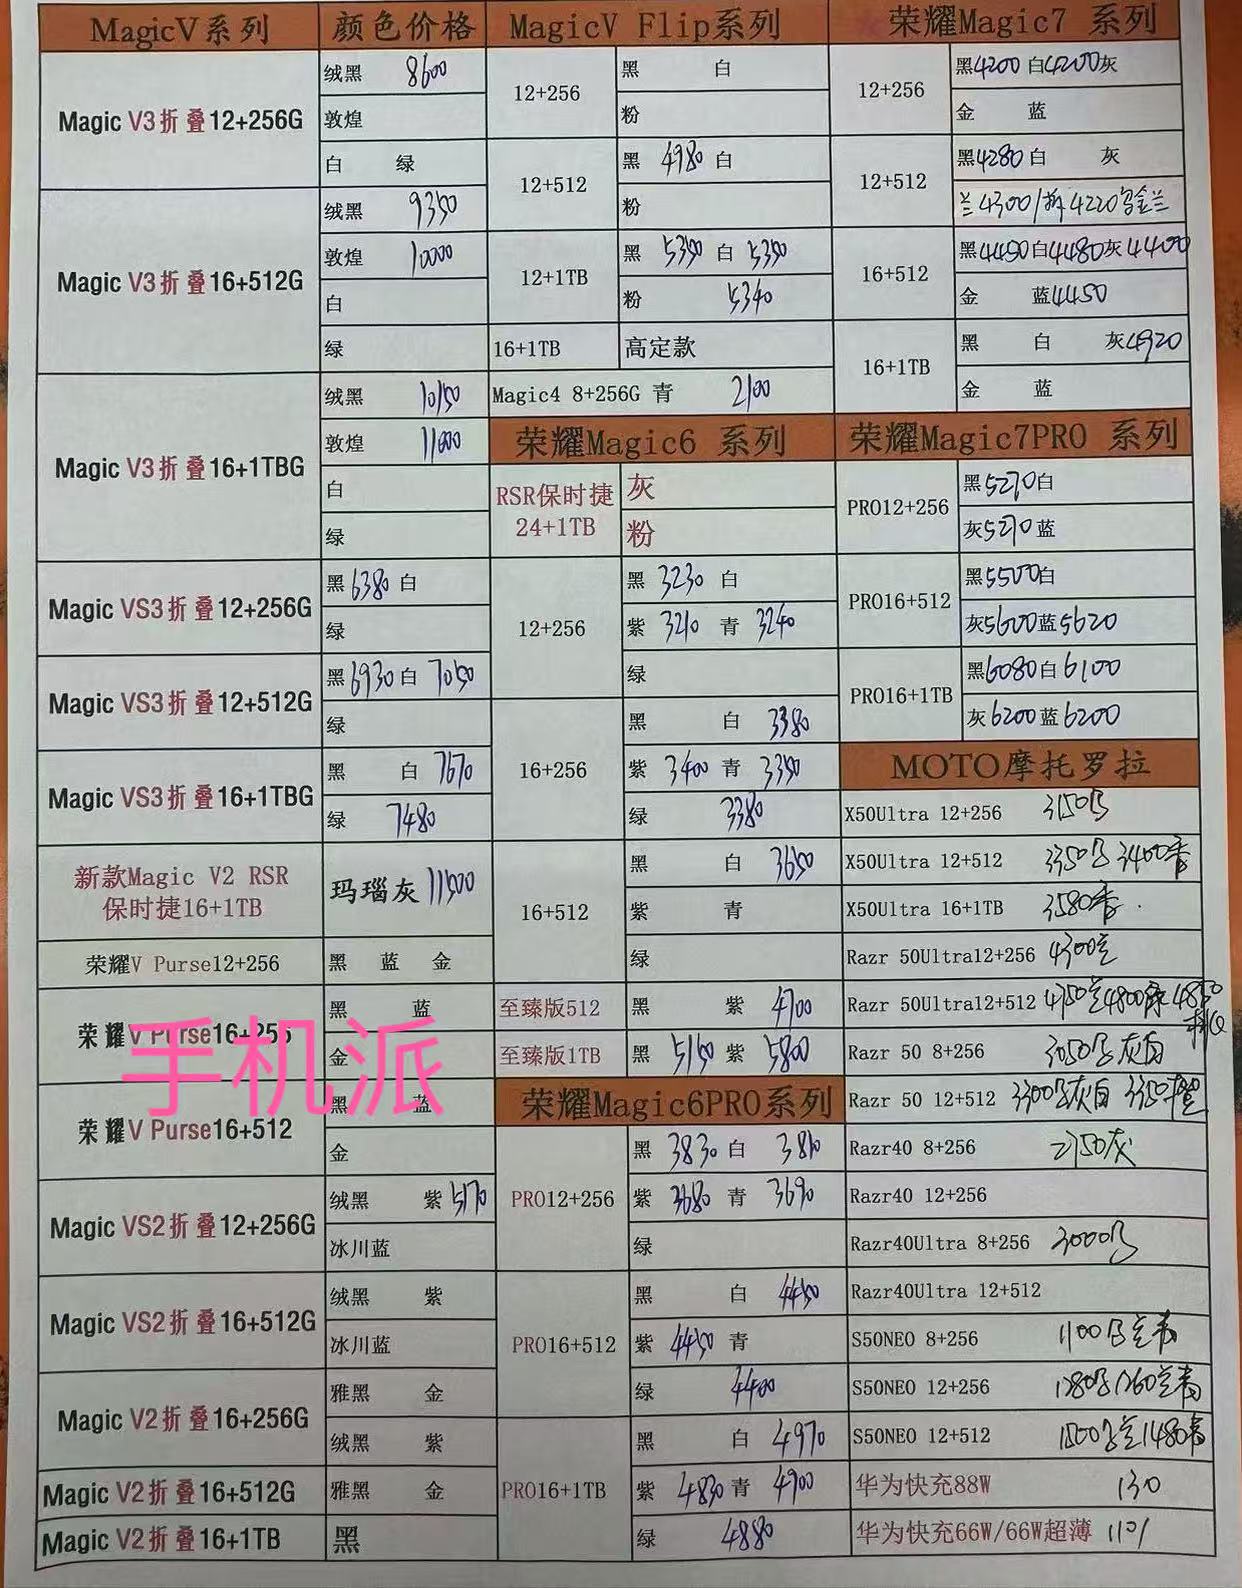 MagicV系列 颜色价格
Magic V3折叠12+256G 绒黑 8600
敦煌
白 绿
Magic V3折叠16+512G 绒黑 9350
敦煌 10000
白
绿
Magic V3折叠16+1TBG 绒黑 10150
敦煌 11000
白
绿
Magic VS3折叠12+256G 黑 6380 白
绿
Magic VS3折叠12+512G 黑 6930 白 7050
绿
Magic VS3折叠16+1TBG 黑 白 7670
绿 7480
新款Magic V2 RSR
保时捷16+1TB
玛瑙灰 11500
荣耀V Purse12+256 黑 蓝 金
荣耀V Purse16+256 黑 蓝
金
手机派
荣耀V Purse16+512 黑 蓝
金
Magic VS2折叠12+256G 绒黑 紫 5170
冰川蓝
Magic VS2折叠16+512G 绒黑 紫
冰川蓝
Magic V2折叠16+256G 雅黑 金
绒黑 紫
Magic V2折叠16+512G 雅黑 金
Magic V2折叠16+1TB 黑
MagicV Flip系列
12+256 黑 白
粉
12+512 黑 4980 白
粉
12+1TB 黑 5350 白 5350
粉 5340
16+1TB 高定款
Magic4 8+256G 青 2100
荣耀Magic6 系列
RSR保时捷
24+1TB
灰
粉
12+256 黑 3230 白
紫 3210 青 3240
绿
16+256 黑 白 3380
紫 3400 青 3350
绿 3380
16+512 黑 白 3650
紫 青
绿
至臻版512 黑 紫 4700
至臻版1TB 黑 5150 紫 5800
荣耀Magic6PRO系列
PRO12+256 黑 3830 白 3810
紫 3680 青 3690
绿
PRO16+512 黑 白 4450
紫 4450 青
绿 4400
PRO16+1TB 黑 白 4970
紫 4830 青 4900
绿 4880
荣耀Magic7 系列
12+256 黑4200 白4200灰
金 蓝
12+512 黑4280 白 灰
兰4300/拆4220 金兰
16+512 黑4450白4480灰4400
金 蓝4450
16+1TB 黑 白 灰4920
金 蓝
荣耀Magic7PRO 系列
PRO12+256 黑5270白
灰5270蓝
PRO16+512 黑5500白
灰5600蓝5620
PRO16+1TB 黑6080白6100
灰6200蓝6200
MOTO摩托罗拉
X50Ultra 12+256 3150
X50Ultra 12+512 3350 3400杏
X50Ultra 16+1TB 3580杏
Razr 50Ultra12+256 4300兰
Razr 50Ultra12+512 4750兰4800 4850
Razr 50 8+256 3050 灰白
Razr 50 12+512 3300 灰白 3350橙
Razr40 8+256 2150灰
Razr40 12+256
Razr40Ultra 8+256 3000
Razr40Ultra 12+512
S50NEO 8+256 1100 兰
S50NEO 12+256 1280 1260兰
S50NEO 12+512 1500 兰1480
华为快充88W 130
华为快充66W/66W超薄 110/